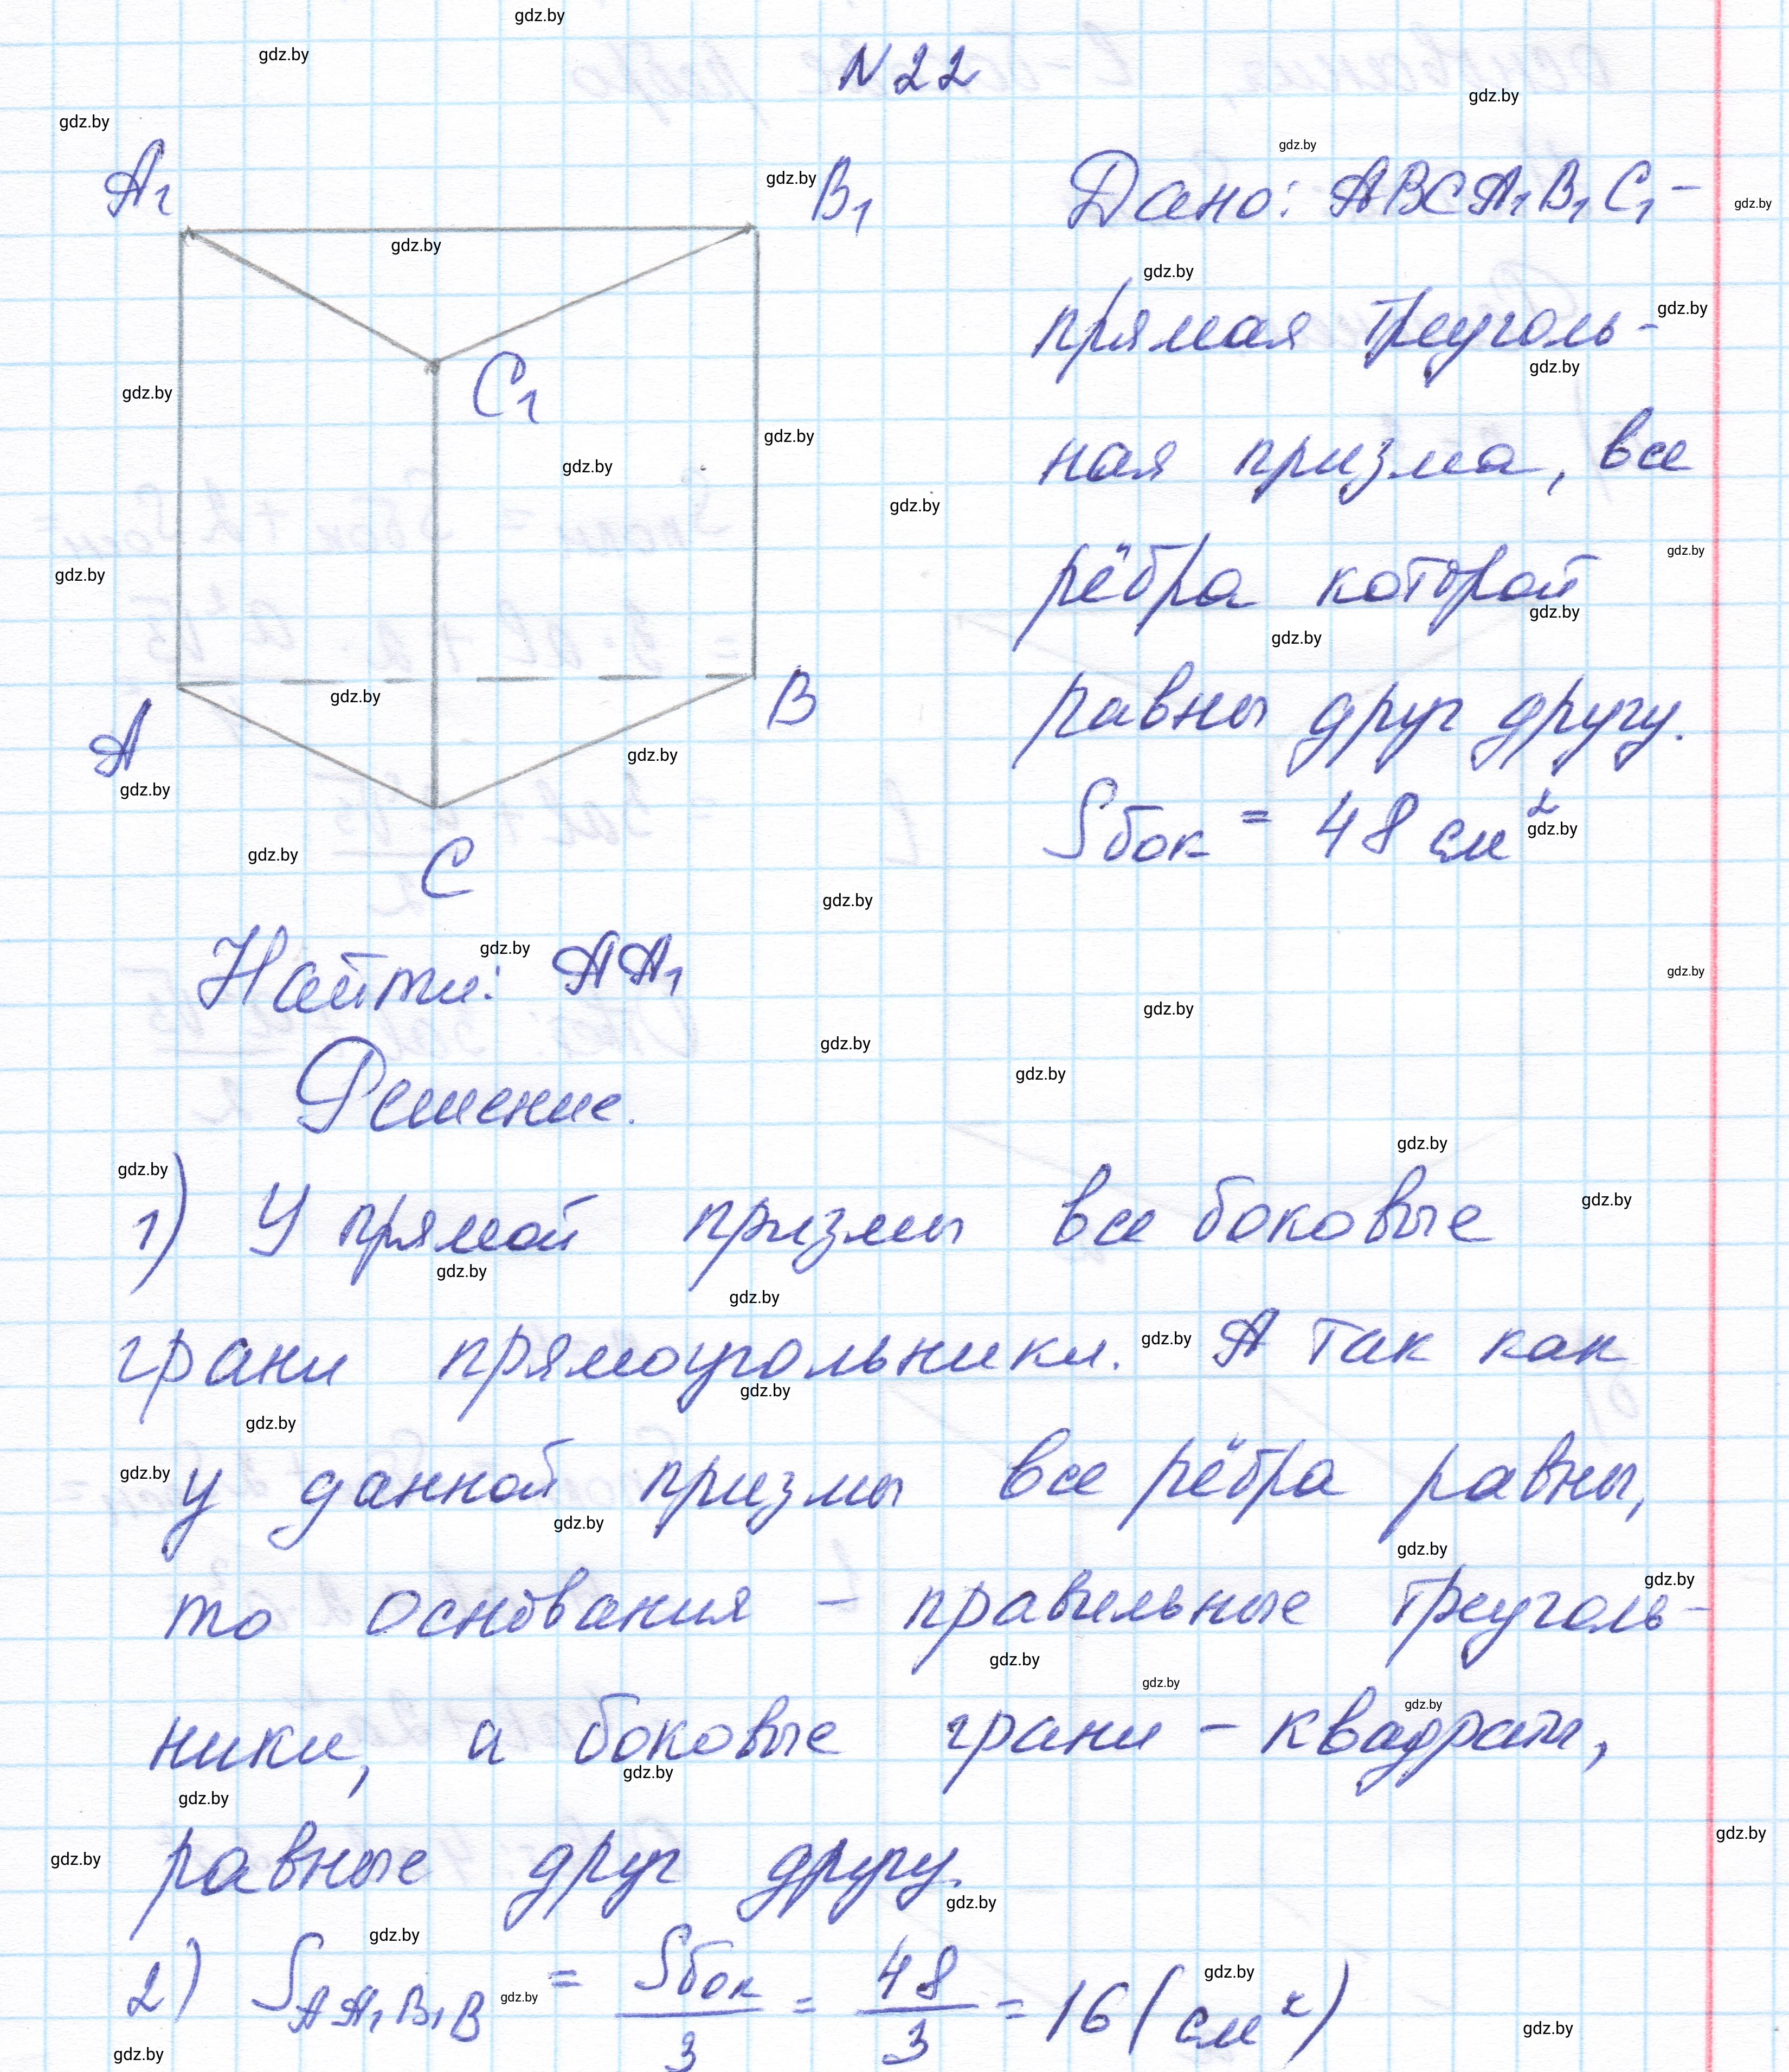 N22
A₁
B₁
C₁
A
B
C
Дано: ABCA₁B₁C₁ –
прямая треуголь-
ная призма, все
рёбра которой
равны друг другу.
Sбок = 48 см²
Найти: AA₁
Решение.
1) У прямой призмы все боковые
грани прямоугольники. А так как
у данной призмы все рёбра равны,
то основания – правильные треуголь-
ники, а боковые грани – квадраты,
равные друг другу.
2) S_AA₁B₁B = Sбок/3 = 48/3 = 16 (см²)
gdz.by